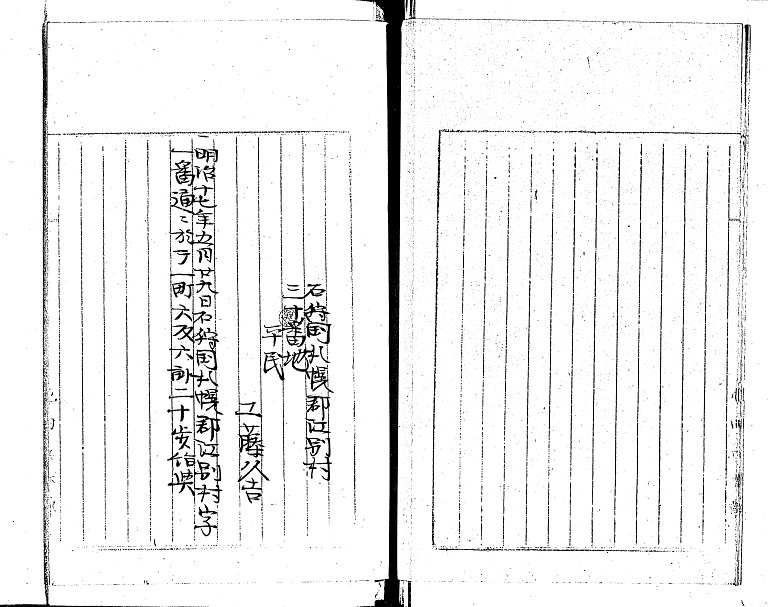 石狩国札幌郡江別村
三十番地
平民
工藤久吉
一明治十七年五月廿九日石狩国札幌郡江別村字
一番通ニ於テ一町六反六畝二十歩